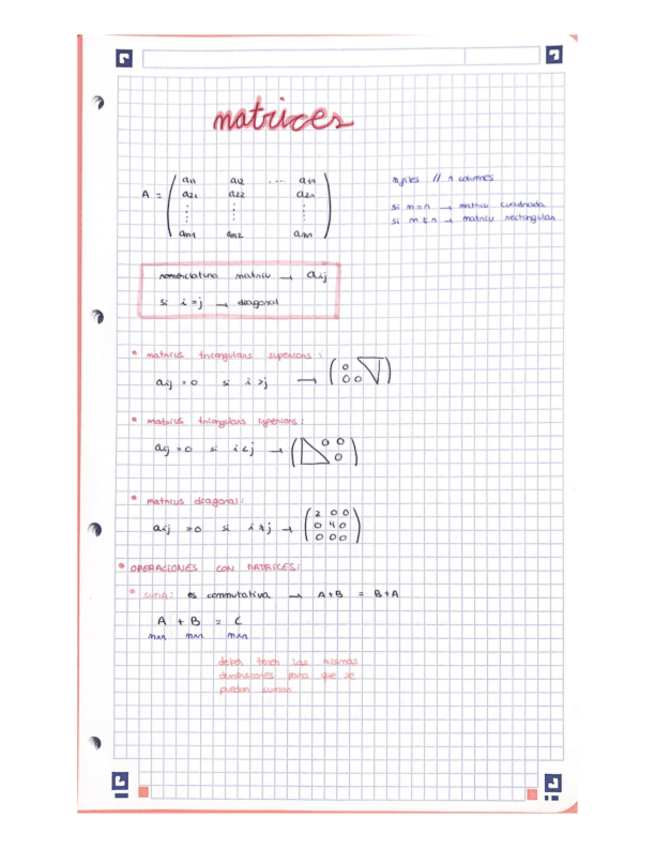 matrices
A = ( a11 a12 ... a1n
a21 a22 a2n
⋮ ⋮ ⋮
am1 am2 amn )
m files // n columnes
si m=n → matriu cuadrada
si m≠n → matriu rectangular
nomenclatura matriu → aij
si i=j → diagonal
• matrius triangulars superiors:
aij = 0 si i>j → ( 0
0 0 )
• matrius triangulars inferiors:
aij = 0 si i<j → ( 0 0
0 )
• matrius diagonal:
aij = 0 si i≠j → ( 2 0 0
0 4 0
0 0 0 )
• OPERACIONES CON MATRICES:
• SUMA: es commutativa → A+B = B+A
A + B = C
mxn mxn mxn
deben tener las mismas
dimensiones para que se
puedan sumar